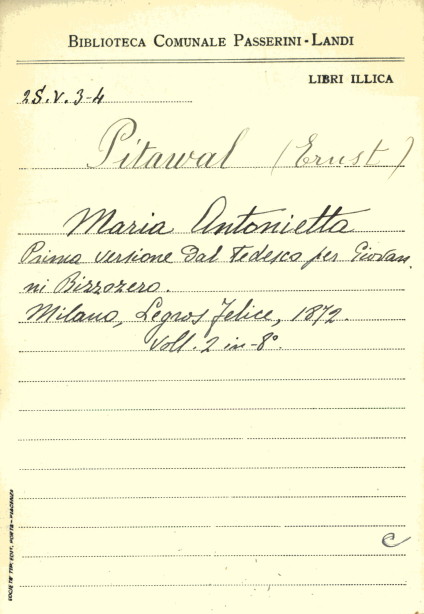 BIBLIOTECA COMUNALE PASSERINI-LANDI
LIBRI ILLICA
2S.V.3-4
Pitawal (Ernst)
Maria Antonietta
Prima versione dal tedesco per Giovan-
ni Bizzozero.
Milano, Legros Felice, 1872.
Voll. 2 in-8°.
C